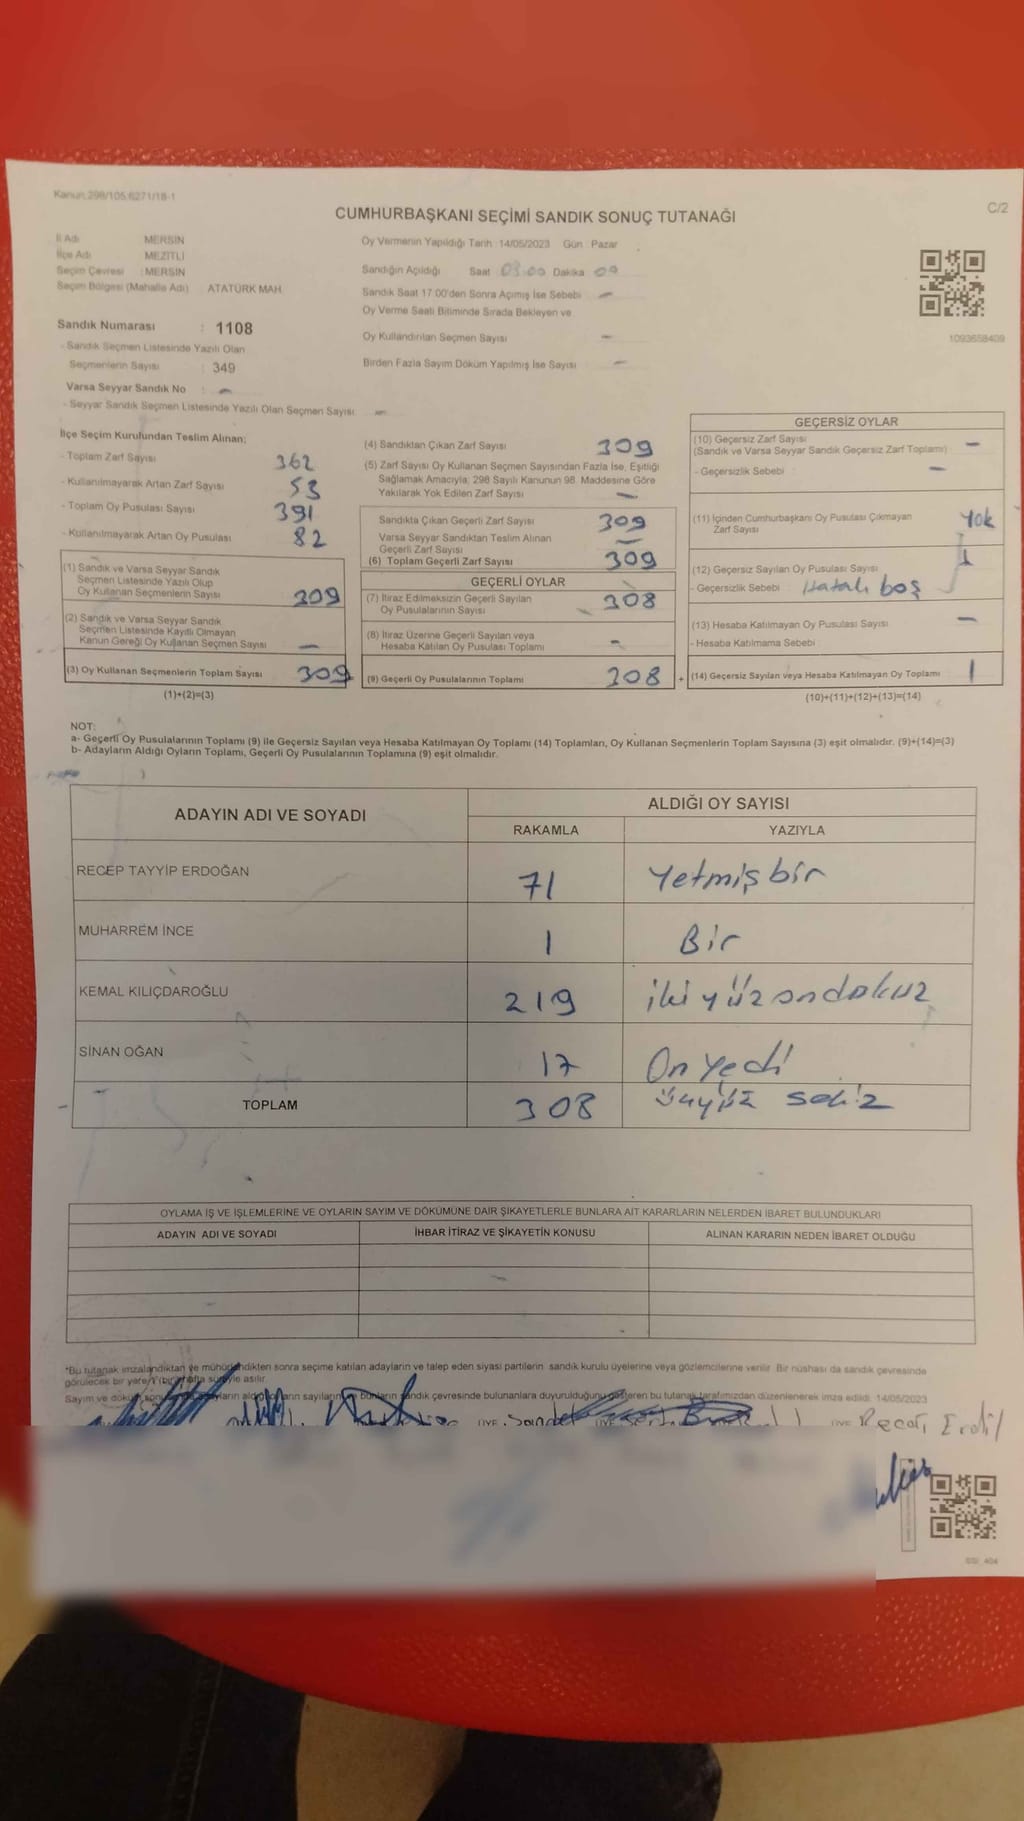 Kanun 298/105,6271/18-1
C/2
CUMHURBAŞKANI SEÇİMİ SANDIK SONUÇ TUTANAĞI
İl Adı MERSİN
İlçe Adı MEZİTLİ
Seçim Çevresi : MERSİN
Seçim Bölgesi (Mahalle Adı) ATATÜRK MAH.
Oy Vermenin Yapıldığı Tarih :14/05/2023 Gün : Pazar
Sandığın Açıldığı Saat Dakika
Sandık Saat 17.00'den Sonra Açımış İse Sebebi –
Oy Verme Saati Bitiminde Sırada Bekleyen ve
Oy Kullandırılan Seçmen Sayısı –
Birden Fazla Sayım Döküm Yapılmış İse Sayısı –
1093658409
Sandık Numarası : 1108
- Sandık Seçmen Listesinde Yazılı Olan
Seçmenlerin Sayısı : 349
Varsa Seyyar Sandık No : –
- Seyyar Sandık Seçmen Listesinde Yazılı Olan Seçmen Sayısı –
İlçe Seçim Kurulundan Teslim Alınan:
- Toplam Zarf Sayısı 362
- Kullanılmayarak Artan Zarf Sayısı 53
- Toplam Oy Pusulası Sayısı 391
- Kullanılmayarak Artan Oy Pusulası 82
(1) Sandık ve Varsa Seyyar Sandık
Seçmen Listesinde Yazılı Olup
Oy Kullanan Seçmenlerin Sayısı 309
(2) Sandık ve Varsa Seyyar Sandık
Seçmen Listesinde Kayıtlı Olmayan
Kanun Gereği Oy Kullanan Seçmen Sayısı –
(3) Oy Kullanan Seçmenlerin Toplam Sayısı 309
(1)+(2)=(3)
(4) Sandıktan Çıkan Zarf Sayısı 309
(5) Zarf Sayısı Oy Kullanan Seçmen Sayısından Fazla İse, Eşitliği
Sağlamak Amacıyla; 298 Sayılı Kanunun 98. Maddesine Göre
Yakılarak Yok Edilen Zarf Sayısı –
Sandıkta Çıkan Geçerli Zarf Sayısı 309
Varsa Seyyar Sandıktan Teslim Alınan
Geçerli Zarf Sayısı –
(6) Toplam Geçerli Zarf Sayısı 309
GEÇERLİ OYLAR
(7) İtiraz Edilmeksizin Geçerli Sayılan
Oy Pusulalarının Sayısı 308
(8) İtiraz Üzerine Geçerli Sayılan veya
Hesaba Katılan Oy Pusulası Toplamı –
(9) Geçerli Oy Pusulalarının Toplamı 308 +
GEÇERSİZ OYLAR
(10) Geçersiz Zarf Sayısı
(Sandık ve Varsa Seyyar Sandık Geçersiz Zarf Toplamı) –
- Geçersizlik Sebebi –
(11) İçinden Cumhurbaşkanı Oy Pusulası Çıkmayan
Zarf Sayısı Yok
(12) Geçersiz Sayılan Oy Pusulası Sayısı 1
- Geçersizlik Sebebi : Hatalı boş
(13) Hesaba Katılmayan Oy Pusulası Sayısı –
- Hesaba Katılmama Sebebi
(14) Geçersiz Sayılan veya Hesaba Katılmayan Oy Toplamı 1
(10)+(11)+(12)+(13)=(14)
NOT:
a- Geçerli Oy Pusulalarının Toplamı (9) ile Geçersiz Sayılan veya Hesaba Katılmayan Oy Toplamı (14) Toplamları, Oy Kullanan Seçmenlerin Toplam Sayısına (3) eşit olmalıdır. (9)+(14)=(3)
b- Adayların Aldığı Oyların Toplamı, Geçerli Oy Pusulalarının Toplamına (9) eşit olmalıdır.
ADAYIN ADI VE SOYADI ALDIĞI OY SAYISI
RAKAMLA YAZIYLA
RECEP TAYYİP ERDOĞAN 71 Yetmişbir
MUHARREM İNCE 1 Bir
KEMAL KILIÇDAROĞLU 219 ikiyüzondokuz
SİNAN OĞAN 17 Onyedi
TOPLAM 308 üçyüz sekiz
OYLAMA İŞ VE İŞLEMLERİNE VE OYLARIN SAYIM VE DÖKÜMÜNE DAİR ŞİKAYETLERLE BUNLARA AİT KARARLARIN NELERDEN İBARET BULUNDUKLARI
ADAYIN ADI VE SOYADI İHBAR İTİRAZ VE ŞİKAYETİN KONUSU ALINAN KARARIN NEDEN İBARET OLDUĞU
*Bu tutanak imzalandıktan ve mühürlendikten sonra seçime katılan adayların ve talep eden siyasi partilerin sandık kurulu üyelerine veya gözlemcilerine verilir. Bir nüshası da sandık çevresinde
görülecek bir yere (bir) hafta süreyle asılır.
Sayım ve döküm bunların sandık çevresinde bulunanlara duyurulduğunu gösteren bu tutanak tarafımızdan düzenlenerek imza edildi. 14/05/2023